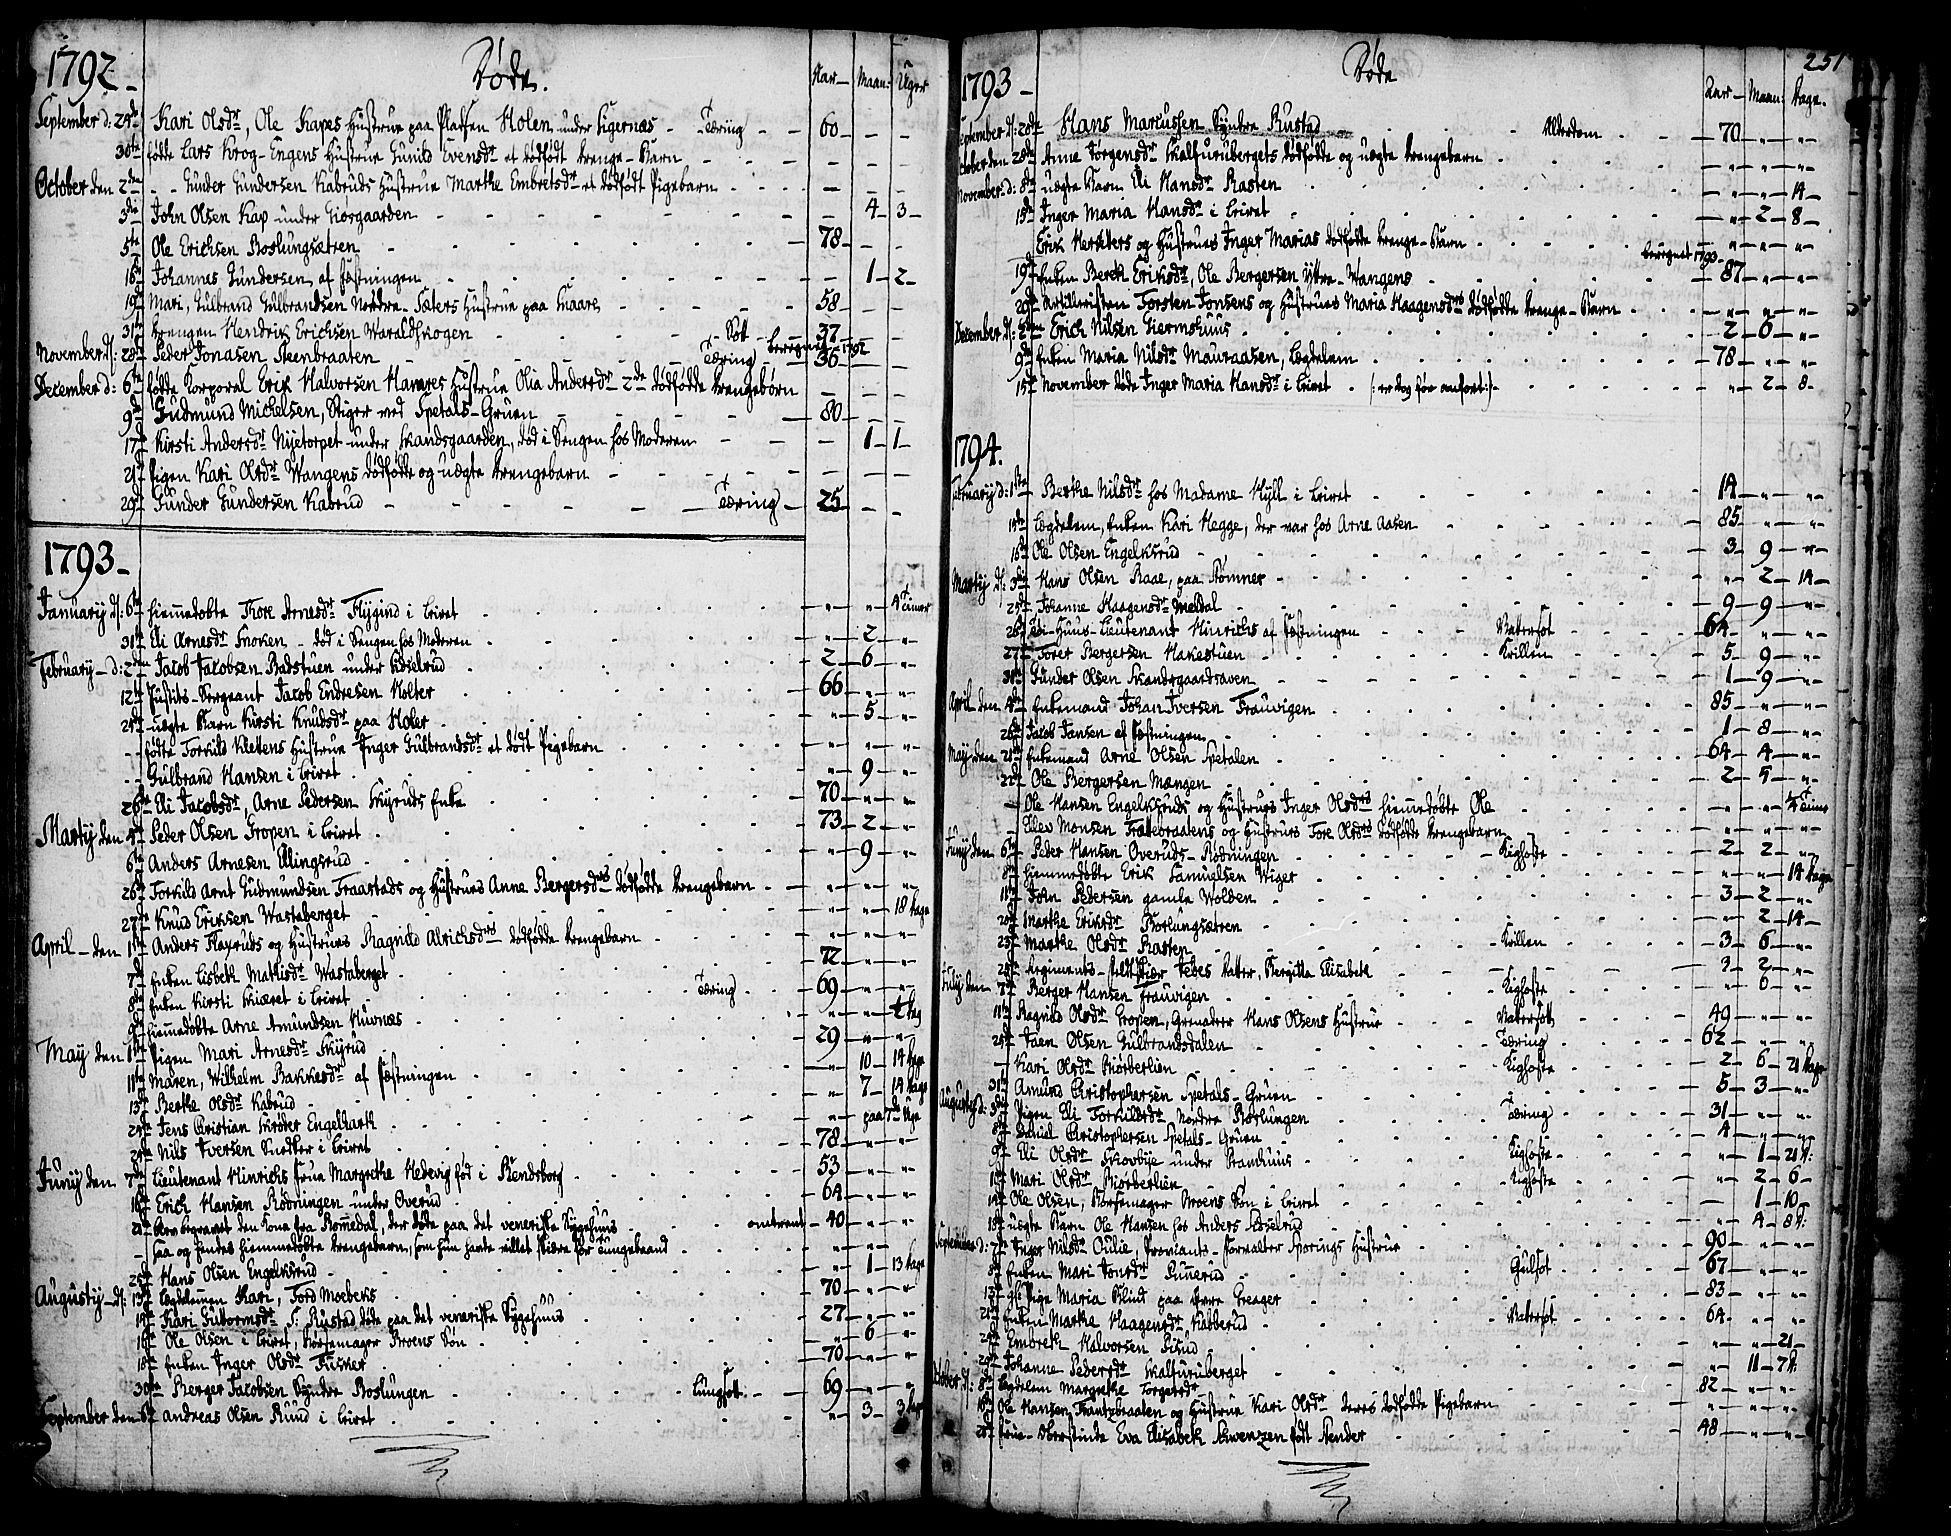 1792
Døde.
Aar Maan: Uger
September d: 29de Kari Olsdr, Ole Kapes Hustrue paa Pladsen Holen under Sigernæs - Tæring - 60
30te fødte Lars Krog-Engens Hustrue Gunild Evensdr et dødfødt Drenge-Barn
October den 2den Gunder Gundersen Kabruds Hustrue Marthe Embretsdr et dødfødt Pigebarn
3die John Olsen Kap under Giørsgaarden 4 3
5te Ole Erichsen Boslungsætren 78
16de Johannes Gundersen af Fæstningen 1 2
19de Mari, Gulbrand Gulbrandsen Nordre Søkers Hustrue paa 58
31te Drengen Hendrik Erichsen Waraldskogen - Sott - 37
November d: 28de Peder Jonasen Steenbraaten Tæring 36
beregnet 1792
December d: 6te fødte Korporal Erik Halvorsen Hammers Hustrue Olia Andersdr 2de dødfødte Drengebørn
9de Gudmund Michelsen, Stiger ved Spetals-Gruen 80
17de Kirsti Andersdr Nyetorpet under Skandsgaarden, død i Sengen hos Moderen 1 1
21de Pigen Kari Olsdr Wangens dødfødte og uægte Drengebarn
29de Gunder Gundersen Kabrud Tæring 25
1793
Januarij d: 6te hiemmedøbte Thore Arnesdr Flygind i Leiret 4 Timer
31te Eli Arnesdr Snoken - død i Sengen hos Moderen 2
February d: 2den Jacob Jacobsen Badstuen under Edselrud 2 6
12te Justits-Sergeant Jacob Endresen Holter 66
24de uægte Barn Kirsti Knudsdr paa Holer 5
fødte Torkild Klettens Hustrue Inger Gulbrandsdr et dødt Pigebarn
Gulbrand Hansen i Leiret 9
26de Eli Jacobsdr, Arne Pedersen Skyruds Enke 70
Martij den 4de Peder Olsen Gropen i Leiret 73 2
6te Anders Arnesen Ellingsrud 9
26de Torkild Arnt Gudmundsen Fraastads og Hustrues Anne Bergersdrs dødfødte Drengebarn
27de Knud Eriksen Wastaberget 18 Dage
April den 1ste Anders Flayruds og Hustrues Ragnild Alrichsdrs dødfødte Drengebarn
7de Enken Lisbeth Mathisdr Wastaberget 72
8de Enken Kirsti Skiæret i Leiret Tæring 69
9de hiemmedøbte Arne Amundsen Huvnæs 1 Dag
May den 1ste Pigen Mari Arnesdr Skyrud 29
11te Maren, Wilhelm Bakkesdr af Fæstningen 10 14 Dage
13de Berthe Olsdr Kabrud 7 14 Dage
24de Jens Christian Skrøter Engelhardt paa 7de Uge
29de Nils Iversen Snedker i Leiret 78
Junij den 7de Lieutenant Hinrichs Frue Margrethe Hedevig fød i Rendsborg 53
16de Erich Hansen Rødningen under Overud 64
21de blev begravet den Kone fra Romedal, der døde paa det veneriske Sygehuus omtrent 40
saa og hendes hiemmedøbte Drengebarn
25de Hans Olsen Engelksrud 1 13 Dage
Augustij d: 13de Lægdelemmen Kari, Tord Moebeks 70
14de Kari Guttormsdr S: Rustad døde paa det veneriske Sygehuus 27
16de Ole Olsen i Leiret, Børsemager Broens Søn 6
18de Enken Inger Olsdr Fisker 70
30te Berger Jacobsen Syndre Boslungen Lungsott 69
September den 6te Andreas Olsen Rund i Leiret 3 3 Dage
1793
Døde
251
Aar Maan: Dage.
September d: 20de Hans Martussen Syndre Rustad Alderdom 70
October den 28de Anne Jørgensdr Skalfurubergets dødfødte og uægte Drengebarn
November d: 8de uægte Barn Eli Hansdr Rasten 14
15de Inger Maria Hansdr i Leiret 2 8
Erik Herkters og Hustrues Inger Marias dødfødte Drenge-Barn
beregnet 1793
19de Enken Bereth Eriksdr, Ole Bergersen Yttre-Wangens 87
20de Artilleristen Torsten Jonsens og Hustrues Maria Haagensdrs dødfødte Drenge-Barn
December d: 2den Erich Nilsen Giermshuus 2 6
9de Enken Maria Nilsdr Mauraasen, Lægdelem 78
15de November døde Inger Maria Hansdr i Leiret (: er dog før anført :) 2 8
1794.
February d: 1ste Berthe Nilsdr hos Madame Hyll i Leiret 14
15de Lægdelem, Enken Kari Hegge, der var hos Arne Aasen 85
16de Ole Olsen Engelksrud 3 9
Martij d: 3die Hans Olsen Raae, paa Rømner 2 14
25de Johanne Haagensdr Meldal 9 9
26de Lieutenant Hinrichs af Fæstningen Vattersot 64
27de Torer Bergersen Hakestuen Krillen 5 9
31te Gunder Olsen Skandsgaardsaven 1 9
April den 4de Enkemand Johan Iversen Frauvigen 85
26de Jacob Jansen af Fæstningen 1 8
May den 21de Enkemand Arne Olsen Spetalen 64 4
22de Ole Bergersen Mangen 2 5
Ole Hansen Engelksruds og Hustrues Inger Olsdrs hiemmedøbte Ole 4 Timer
Ellev Monsen Frattebraatens og Hustrues Tore Olsdrs dødfødte Drengebarn
Junij den 6te Peder Hansen Overuds-Rødningen Kighoste 2 2
8de hiemmedøbte Erik Samuelsen Wiger 14 Dage
11te John Pedersen gamle Wolden 3 2
20de Marthe Eriksdr Boslungsætren 2 14
23de Marthe Olsdr Rasten Krillen 3 6
25de Regiments-Feldtskiær Tebes Datter, Bergitta Elisabeth 3 2
Julij den 7de Berger Hansen Frauvigen Kighoste 6
11te Ragnild Olsdr Gropen, Grenadeer Hans Olsens Hustrue Vattersott 49
25de Taen Olsen Gulbrandsdalen Tæring 62
Kari Olsdr Biørberlien Kighoste 2 6 21 Dage
31te Amund Christophersen Spetals-Gruen 5 3
Augustij d: 3die Pigen Eli Torkildsdr Nordre Boslungen Tæring 31
8de Daniel Christophersen Spetals-Gruen 4
9de Eli Olsdr Skovbye under Stamhuus Kighoste 1 21 d:
11te Mari Olsdr Biørberlien Kighoste 2 6
14de Ole Olsen, Børsemager Broens Søn i Leiret 1 10
18de uægte Barn Ole Hansen hos Anders Edselrud 4 8 d:
September d: 7de Inger Nilsdr Oulie, Proviants-Forvalter Sporings Hustrue 90
8de Enken Mari Jonsdr Sunnerud Guulsot 67
13de Pige Maria Blind paa Øvre Greager 83
21de Enken Marthe Haagensdr Kabberud Vattersot 64
24de Embreth Halvorsen Riisud 21
25de Johanne Pedersdr Skalfuruberget 11 7 d:
October d: 8de Lægdelem Margrethe Torgersdr 82
15de Ole Hansen Frantzbraaten og Hustrue Kari Olsdr deres dødfødte Pigebarn
25de Frue Oberstinde Eva Elisabeth Schwenzen født Stender 48